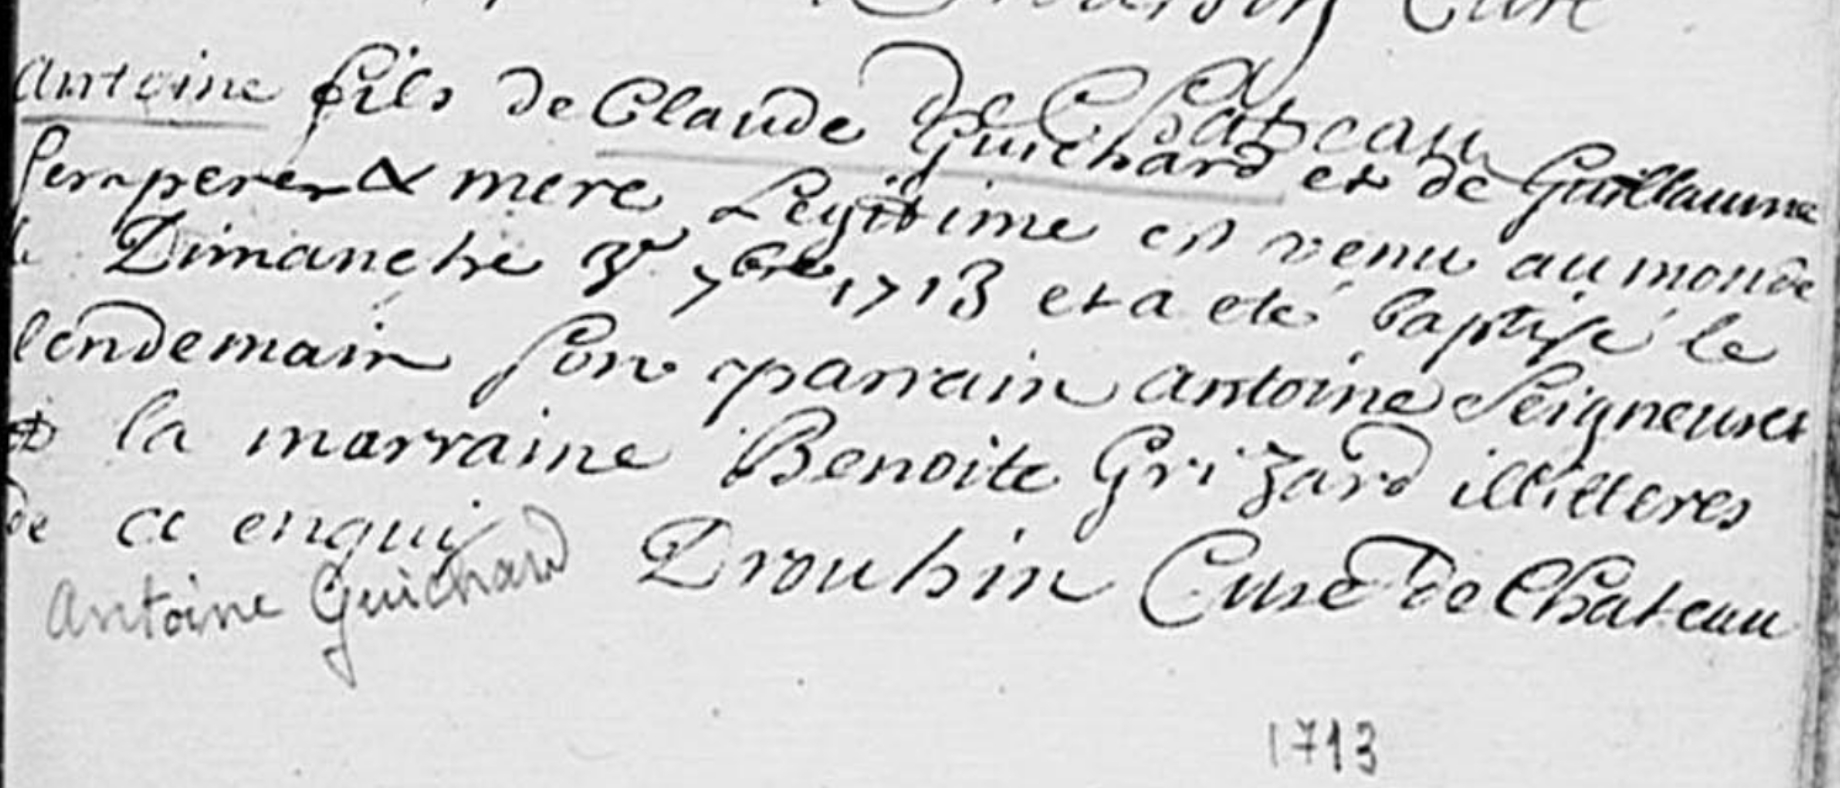 Curé
de Chateau
Antoine fils de Claude Guichard et de Guillaume
pere & mere Legitime est venu au monde
Dimanche 3e 7bre 1713 et a eté baptisé le
lendemain son parrain Antoine Seigneuret
et la marraine Benoite Grizard illitteres
de ce enquis Drouhin Curé de Chateau
Antoine Guichard
1713